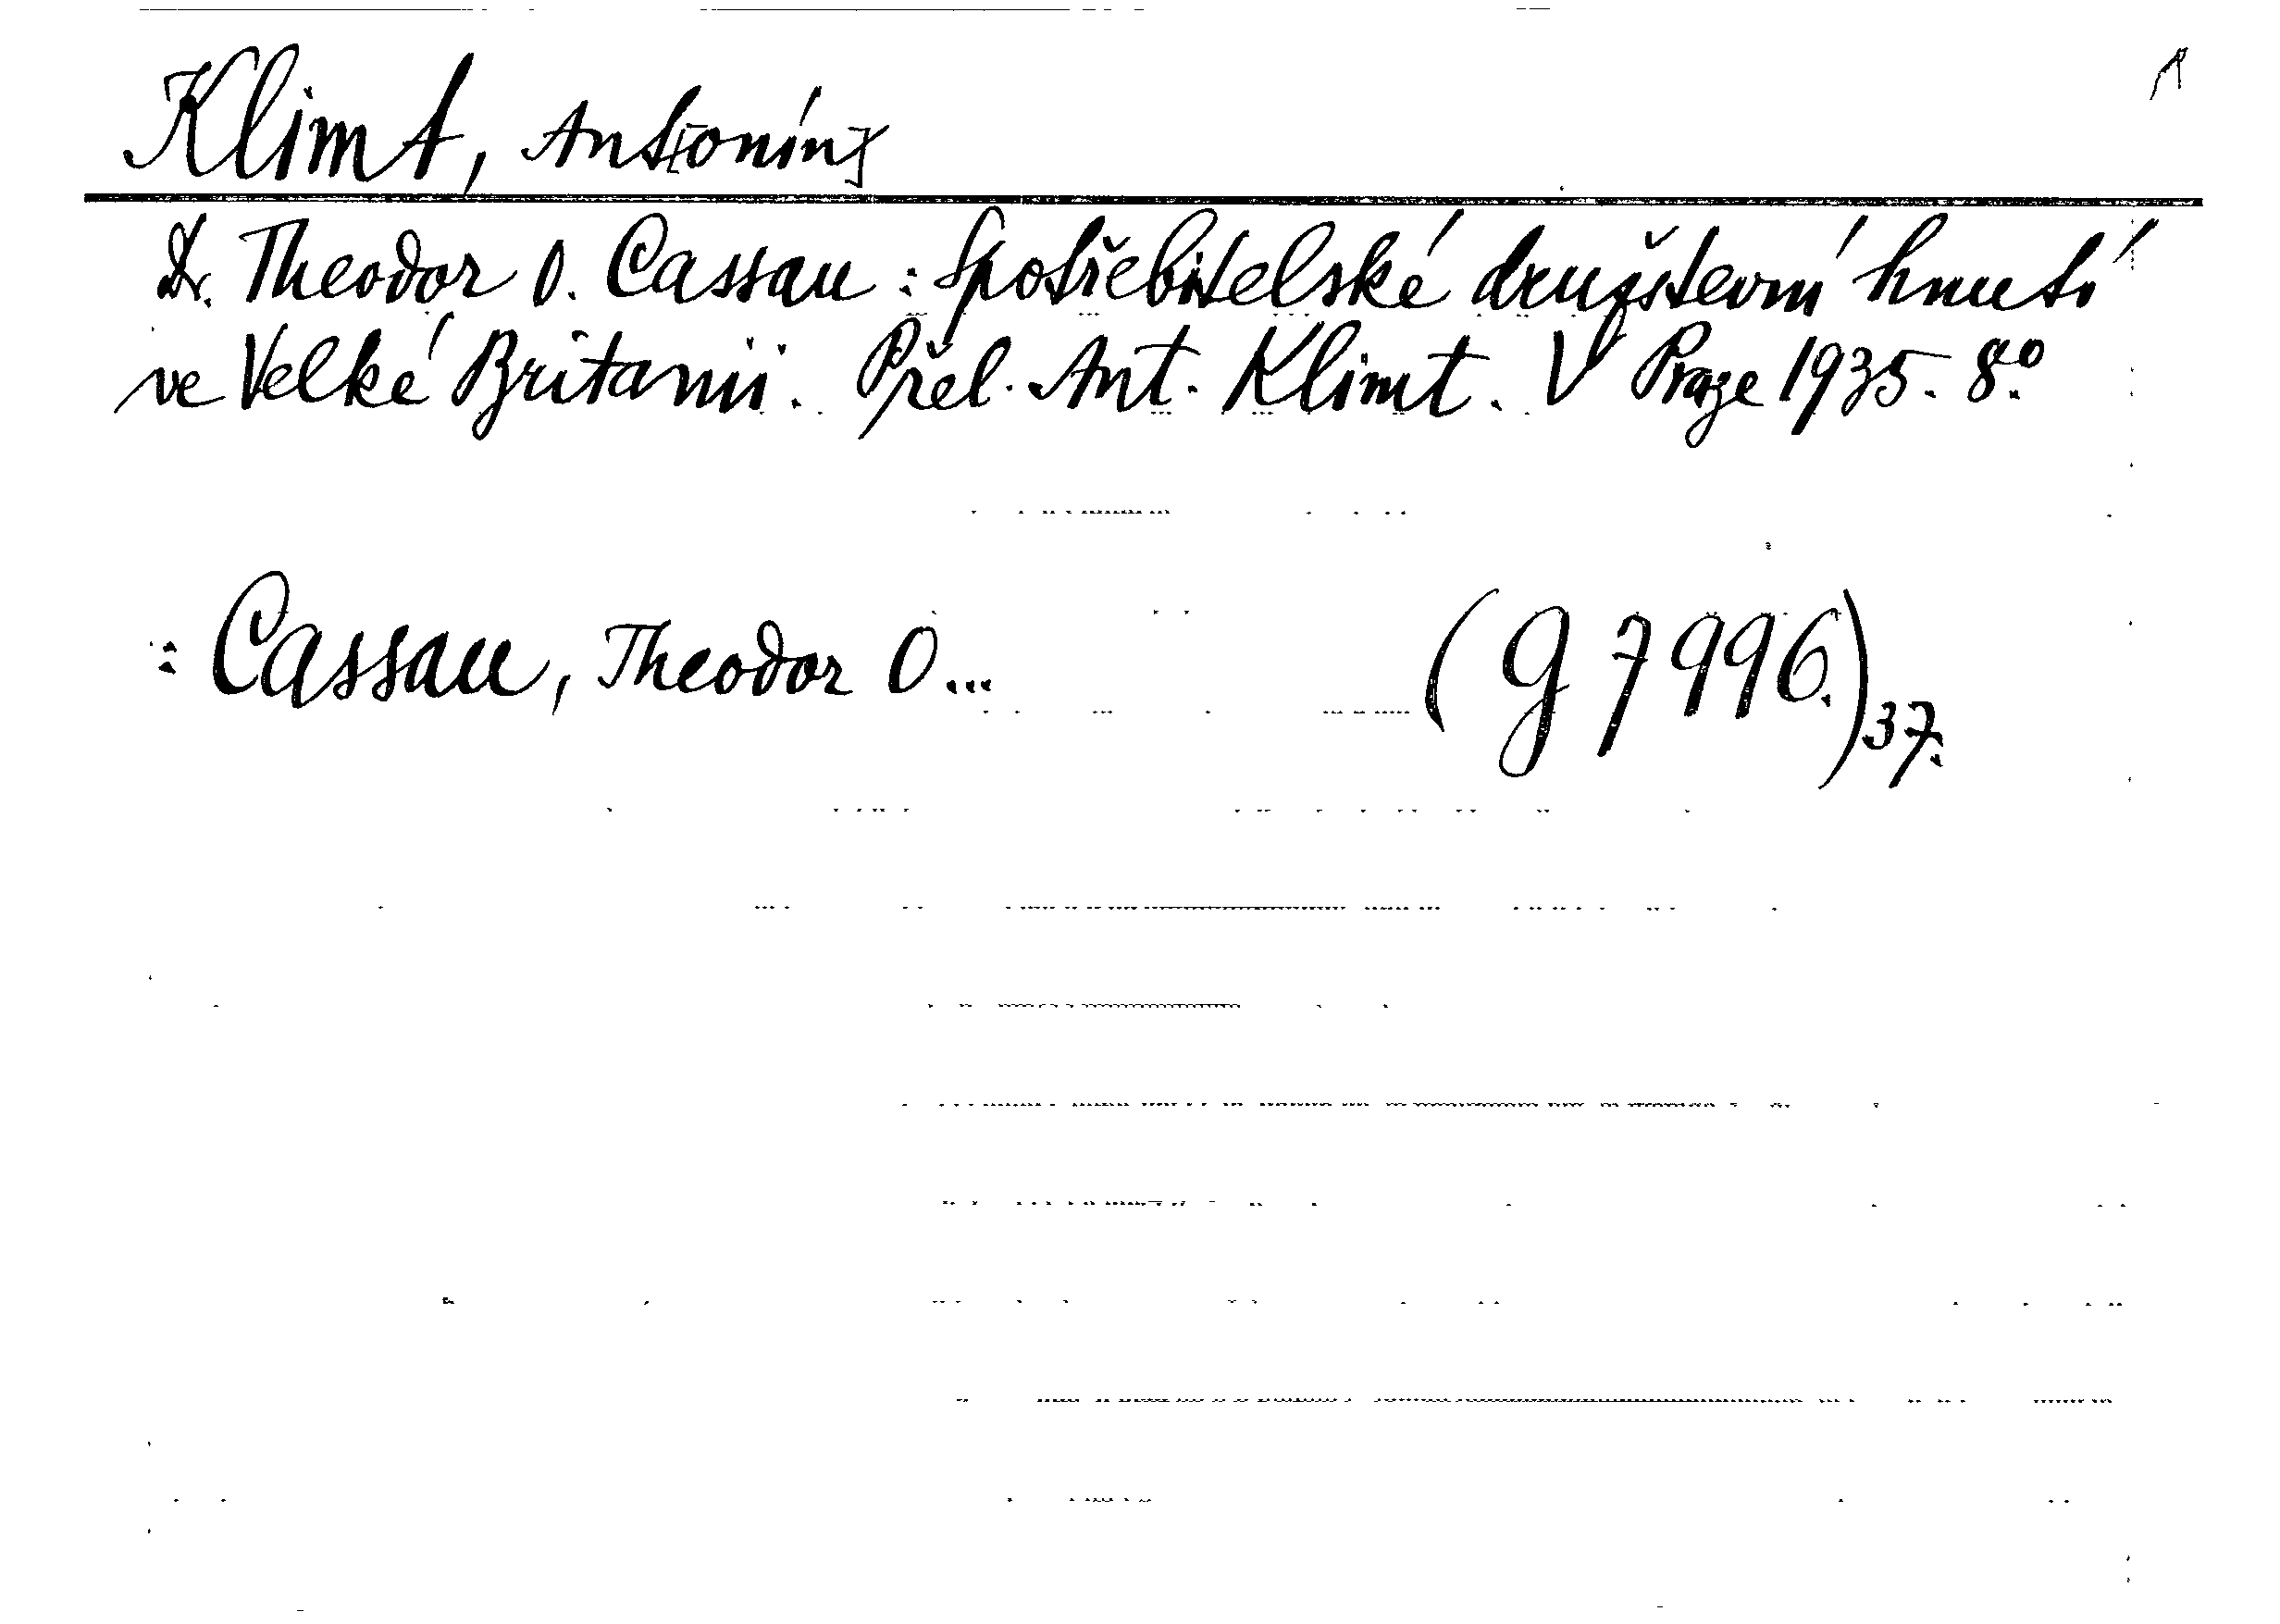 Klimt, Ant[onín]
Dr. Theodor O. Cassau: Spotřebitelské družstevní hnutí
ve Velké Britanii. Přel. Ant. Klimt. V Praze 1935. 8.°
: Cassau, Theodor O... (G 7996.)37.